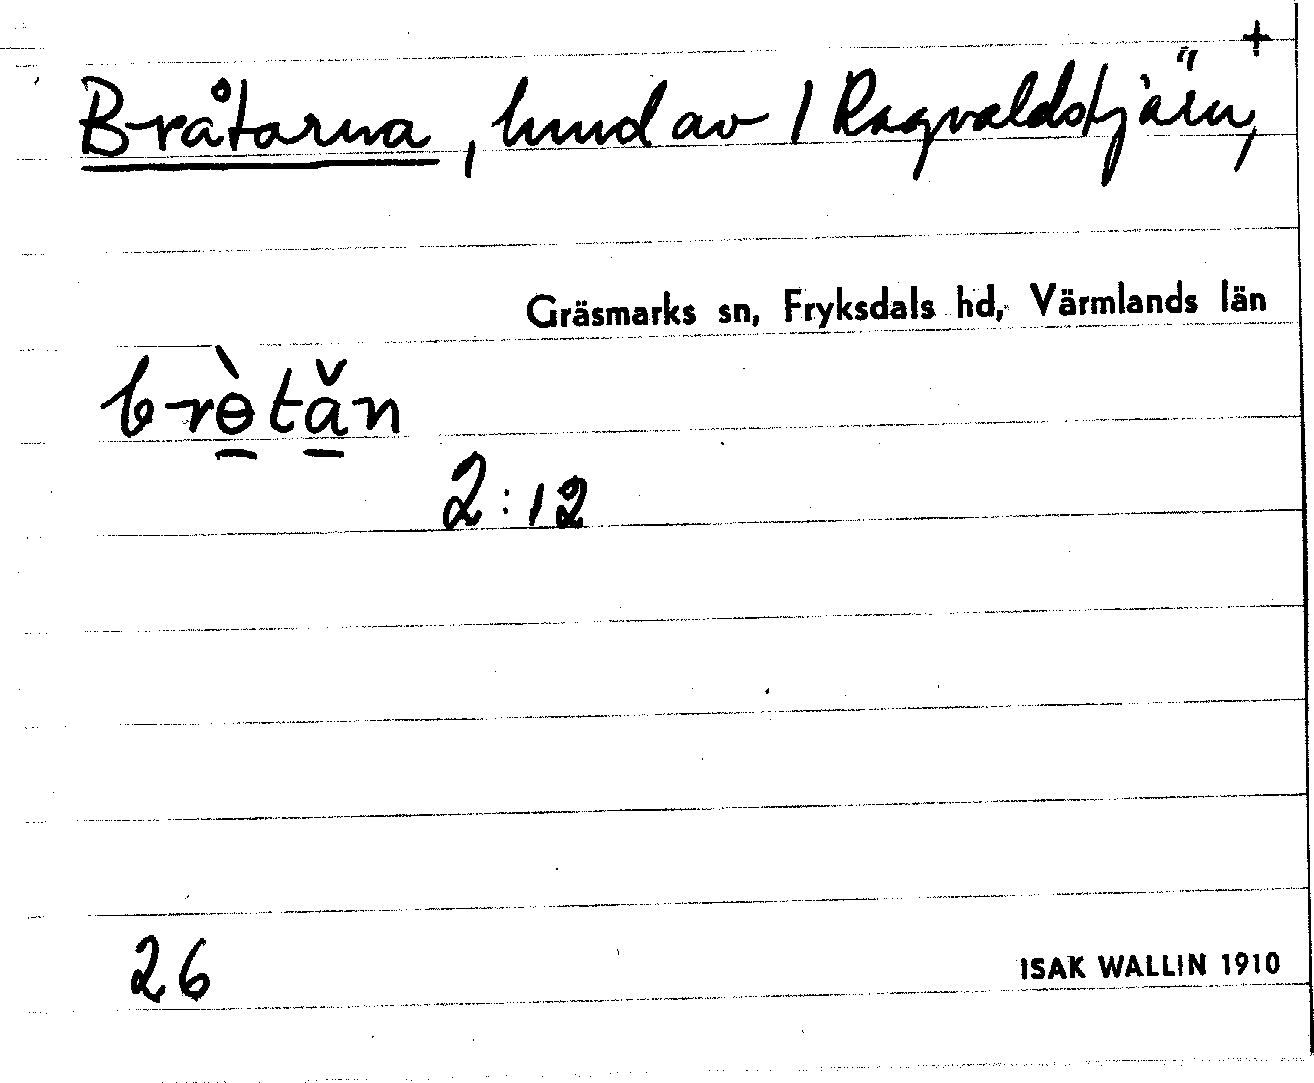 +
Bråtarna, hmd av 1 Ragvaldstjärn,
Gräsmarks sn, Fryksdals hd, Värmlands län
brɵ̠̀tǎ̠n
2:12
26
ISAK WALLIN 1910